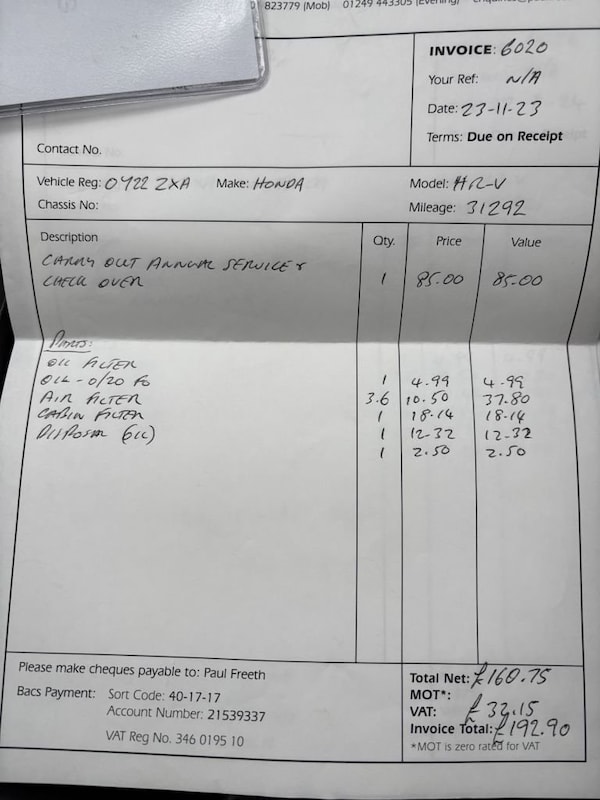 823779 (Mob) 01249 443305 (Evening)
INVOICE: 6020
Your Ref: N/A
Date: 23-11-23
Terms: Due on Receipt
Contact No.
Vehicle Reg: OY22 ZXA Make: HONDA Model: HR-V
Chassis No: Mileage: 31292
Description Qty. Price Value
CARRY OUT ANNUAL SERVICE &
CHECK OVER 1 85.00 85.00
PARTS:
OIL FILTER
OIL - 0/20 FS 1 4.99 4.99
AIR FILTER 3.6 10.50 37.80
CABIN FILTER 1 18.14 18.14
DISPOSAL (OIL) 1 12-32 12-32
1 2.50 2.50
Please make cheques payable to: Paul Freeth Total Net: £160.75
Bacs Payment: Sort Code: 40-17-17 MOT*:
Account Number: 21539337 VAT: £32.15
Invoice Total: £192.90
VAT Reg No. 346 0195 10 *MOT is zero rated for VAT